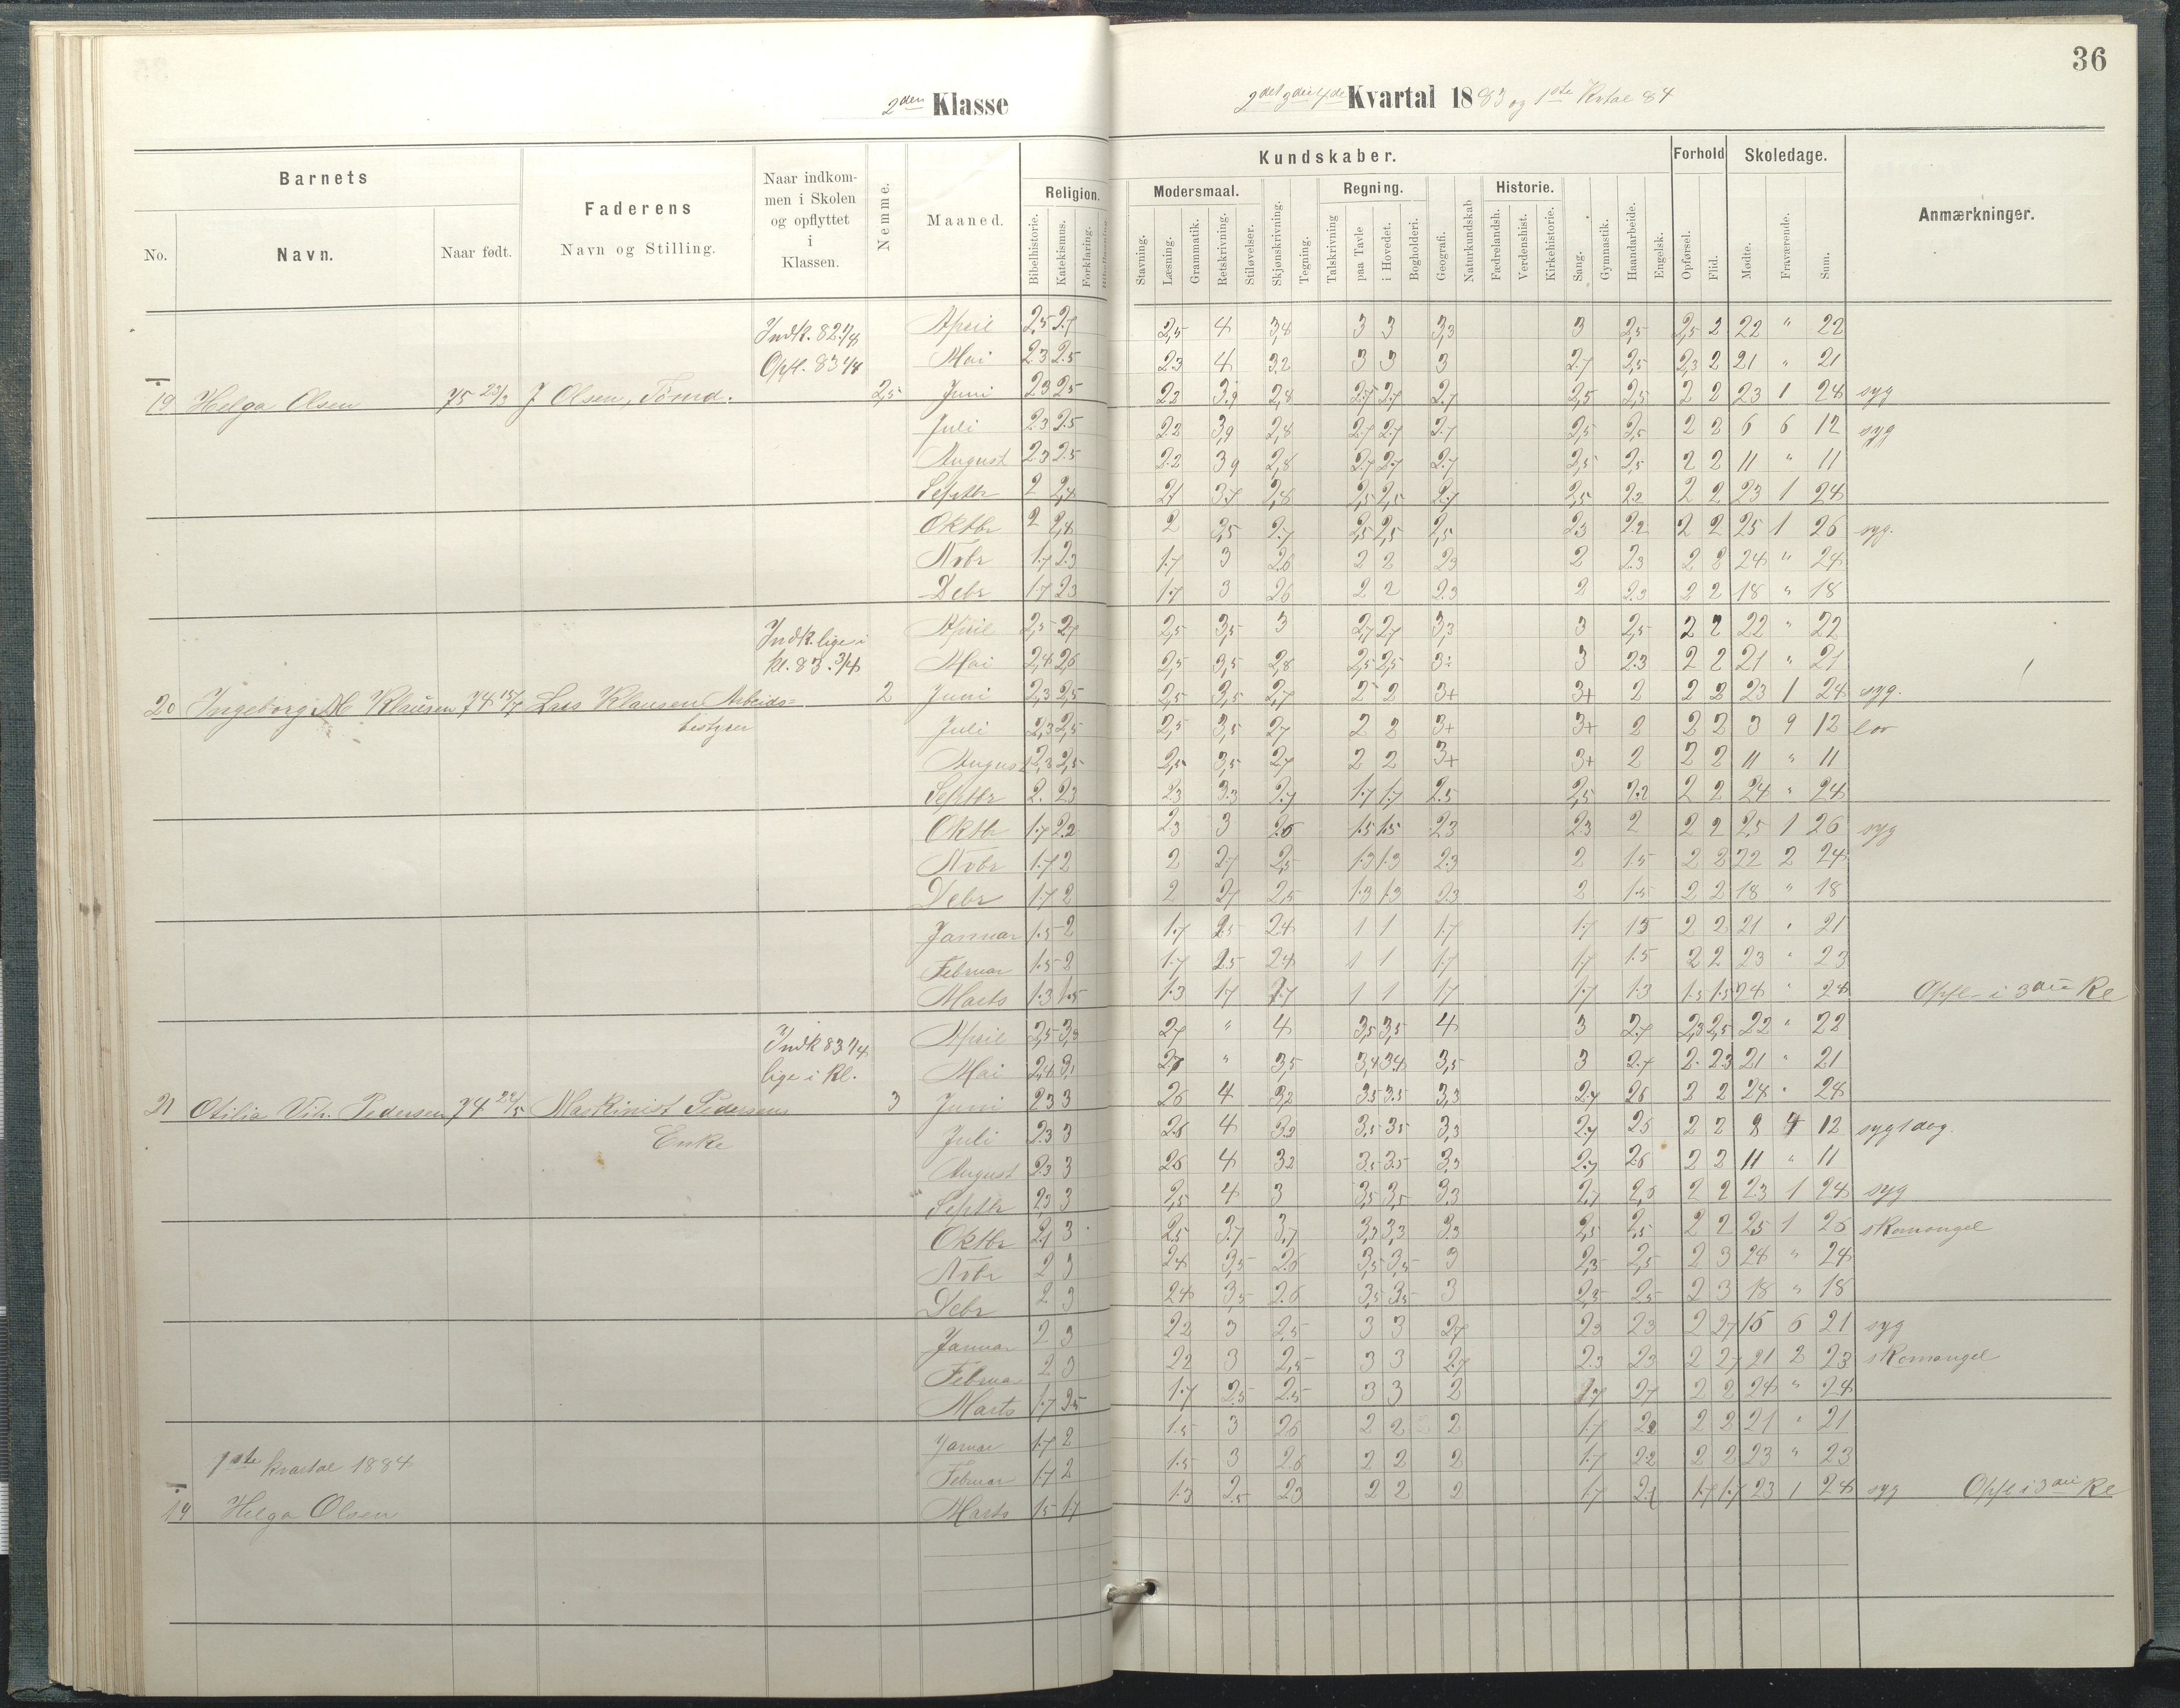 36
2den Klasse
2det 3die 4de Kvartal 1883 og 1ste Kvtal 84
Barnets
Faderens
Naar indkommen i Skolen og opflyttet i Klassen.
Nemme.
Maaned.
Religion.
Kundskaber.
Forhold
Skoledage.
Anmærkninger.
No.
Navn.
Naar født.
Navn og Stilling.
Bibelhistorie.
Katekismus.
Forklaring.
Modersmaal.
Regning.
Historie.
Stavning.
Læsning.
Grammatik.
Retskrivning.
Stiløvelser.
Skjønskrivning.
Tegning.
Talskrivning
paa Tavle
i Hovedet.
Bogholderi.
Geografi.
Naturkundskab
Fædrelandsh.
Verdenshist.
Kirkehistorie.
Sang.
Gymnastik.
Haandarbeide.
Engelsk.
Opførsel.
Flid.
Møde.
Fraværende.
Sum.
Indk. 82 1/8
Opfl. 83 1/4
April 2,5 2.7 2,5 4 3,8 3 3 3,3 3 2,5 2,5 2 22 " 22
Mai 2.3 2.5 2.3 4 3.2 3 3 3 2.7 2,5 2,3 2 21 " 21
19 Helga Olsen 75 23/3 J Olsen, Tømd. 2,5 Juni 2.3 2.5 2.2 3.9 2,8 2.7 2.7 2.7 2,5 2,5 2 2 23 1 24 syg
Juli 2.3 2.5 2.2 3,9 2,8 2.7 2.7 2.7 2,5 2,5 2 2 6 6 12 syg
August 2.3 2.5 2.2 3,9 2,8 2.7 2.7 2.7 2,5 2,5 2 2 11 " 11
Septbr 2 2,4 2.1 3.7 2,8 2,5 2,5 2.7 2,5 2.2 2 2 23 1 24
Oktbr 2 2,4 2 3,5 2.7 2,5 2,5 2,5 2.3 2.2 2 2 25 1 26 syg.
Novbr 1.7 2.3 1.7 3 2.6 2 2 2.3 2 2.3 2 2 24 " 24
Debr 1.7 2.3 1.7 3 2.6 2 2 2.3 2 2.3 2 2 18 " 18
Indk. lige i
Kl. 83. 3/4
April 2,5 2.7 2,5 3,5 3 2,7 2.7 3,3 3 2,5 2 2 22 " 22
Mai 2,4 2,6 2,5 3,5 2,8 2,5 2,5 3÷ 3 2.3 2 2 21 " 21
20 Ingeborg M Klausen 74 15/7 Lars Klausen Arbeids=
bestyrer
2 Juni 2,3 2,5 2,5 3,5 2,7 2 2 3+ 3+ 2 2 2 23 1 24 syg.
Juli 2,3 2,5 2,5 3,5 2.7 2 2 3+ 3+ 2 2 2 3 9 12 lov
August 2,3 2,5 2,5 3,5 2.7 2 2 3+ 3+ 2 2 2 11 " 11
Septbr 2. 2.3 2.3 3.3 2.7 1.7 1.7 2.5 2,5 2.2 2 2 24 " 24
Oktbr 1.7 2.2 2.3 3 2.6 1.5 1.5 2.3 2.3 2 2 2 25 1 26 syg
Novbr 1.7 2 2 2.7 2,5 1.3 1.3 2.3 2 1.5 2 2 22 2 24
Debr 1.7 2 2 2.7 2,5 1.3 1.3 2.3 2 1.5 2 2 18 " 18
Januar 1.5 2 1.7 2.5 2.4 1 1 1.7 1.7 1.5 2 2 21 " 21
Februar 1.5 2 1.7 2.5 2.4 1 1 1.7 1.7 1.5 2 2 23 " 23
Marts 1.3 1.5 1.3 1.7 1.7 1 1 1.7 1.7 1.3 1.5 1.5 24 " 24 Opfl i 3die Kl
Indk 83 1/4
lige i Kl.
April 2,5 3,3 2.7 " 4 3,5 3,5 4 3 2.7 2,3 2,5 22 " 22
Mai 2,4 3,1 2.7 " 3,5 3,4 3.4 3,5 3 2.7 2. 2.3 21 " 21
21 Otilia Vil. Pedersen 74 29/5 Maskinist Pedersens
Enke
3 Juni 2.3 3 2.6 4 3,2 3.5 3.5 3,3 2.7 2.6 2 2 24 " 24
Juli 2.3 3 2.6 4 3.2 3.5 3.5 3,3 2.7 2.6 2 2 8 4 12 syg 1 dag.
August 2.3 3 2.6 4 3.2 3.5 3.5 3,3 2.7 2.6 2 2 11 " 11
Septbr 2,3 3 2,5 4 3 3,5 3,5 3.3 2.7 2,5 2 2 23 1 24 syg
Oktbr 2.1 3 2.5 3.7 3,7 3,3 3,3 3.3 2,5 2,5 2 2 25 1 26 skomangel
Novbr 2 3 2.4 3,5 2.6 3,5 3,5 3 2,5 2,5 2 3 24 " 24
Debr 2 3 2.4 3,5 2.6 3,5 3.5 3 2,5 2.5 2 3 18 " 18
Januar 2 3 2.2 3 2,5 3 3 2.7 2.3 2.3 2 2.7 15 6 21 syg
Februar 2 3 2.2 3 2,5 3 3 2.7 2.3 2.3 2 2.7 21 2 23 skomangel
Marts 1.7 2.5 1.7 2.5 2.5 3 3 2 1.7 2.7 2 2 24 " 24
1ste kvartal 1884
Januar 1.7 2 1.5 3 2.6 2 2 2 1.7 2.2 2 2 21 " 21
Februar 1.7 2 1.5 3 2.6 2 2 2 1.7 2.2 2 2 23 " 23
19 Helga Olsen Marts 1.5 1.7 1.3 2.5 2.3 2 2 2 1.7 2.1 1.7 1.7 23 1 24 syg Opfl i 3die Kl